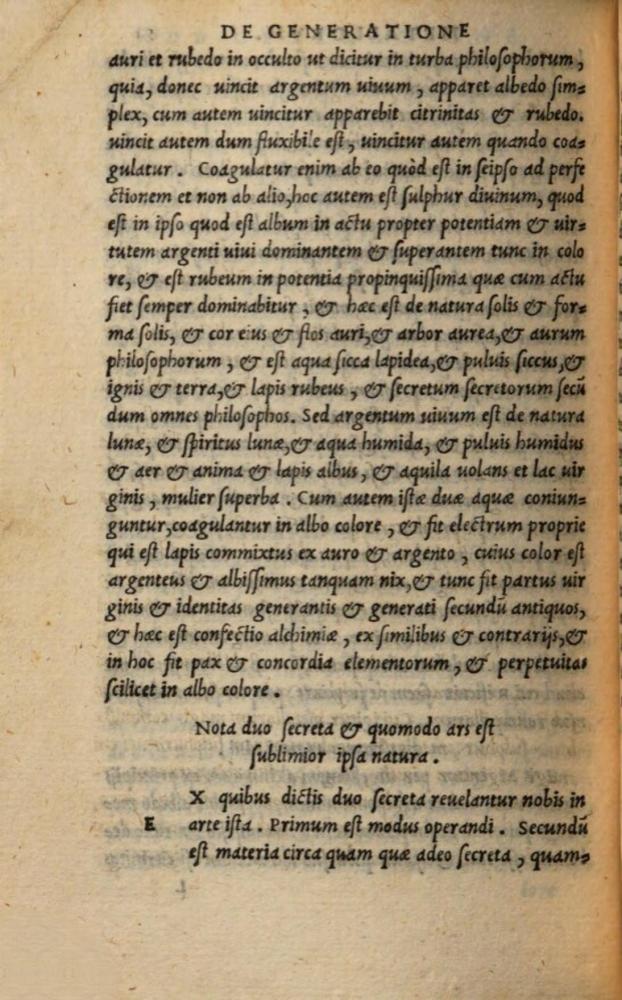 DE GENERATIONE
auri et rubedo in occulto ut dicitur in turba philoſophorum,
quia, donec uincit argentum uiuum, apparet albedo ſim=
plex, cum autem uincitur apparebit citrinitas & rubedo.
uincit autem dum fluxibile eſt, uincitur autem quando coa=
gulatur. Coagulatur enim ab eo quòd eſt in ſeipſo ad perfe
ctionem et non ab alio, hoc autem eſt ſulphur diuinum, quod
eſt in ipſo quod eſt album in actu propter potentiam & uir=
tutem argenti uiui dominantem & ſuperantem tunc in colo
re, & eſt rubeum in potentia propinquiſſima quæ cum actu
fiet ſemper dominabitur, & hæc eſt de natura ſolis & for=
ma ſolis, & cor eius & flos auri, & arbor aurea, & aurum
philoſophorum, & eſt aqua ſicca lapidea, & puluis ſiccus, &
ignis & terra, & lapis rubeus, & ſecretum ſecretorum ſecū
dum omnes philoſophos. Sed argentum uiuum eſt de natura
lunæ, & ſpiritus lunæ, & aqua humida, & puluis humidus
& aer & anima & lapis albus, & aquila uolans et lac uir
ginis, mulier ſuperba. Cum autem iſtæ duæ aquæ coniun=
guntur, coagulantur in albo colore, & fit electrum proprie
qui eſt lapis commixtus ex auro & argento, cuius color eſt
argenteus & albiſſimus tanquam nix, & tunc fit partus uir
ginis & identitas generantis & generati ſecundū antiquos,
& hæc eſt confectio alchimiæ, ex ſimilibus & contrarijs, &
in hoc fit pax & concordia elementorum, & perpetuitas
ſcilicet in albo colore.
Nota duo ſecreta & quomodo ars eſt
ſublimior ipſa natura.
X quibus dictis duo ſecreta reuelantur nobis in
E arte iſta. Primum eſt modus operandi. Secundū
eſt materia circa quam quæ adeo ſecreta, quam=